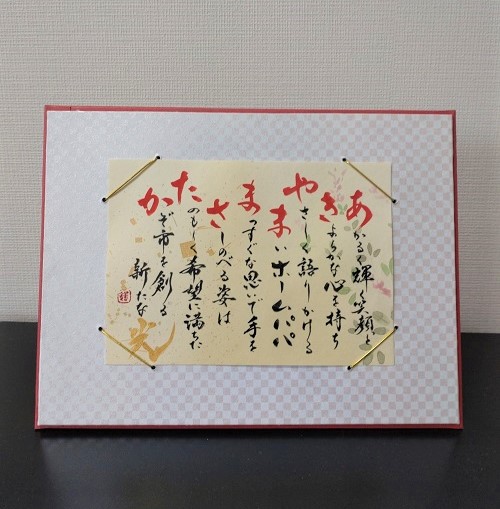 あかるく輝く笑顔と
きよらかな心を持ち
やさしく語りかける
まいホームパパ
まっすぐな思いで手を
さしのべる姿は
たのもしく希望に満ちた
かぞ市を創る
新たな
光